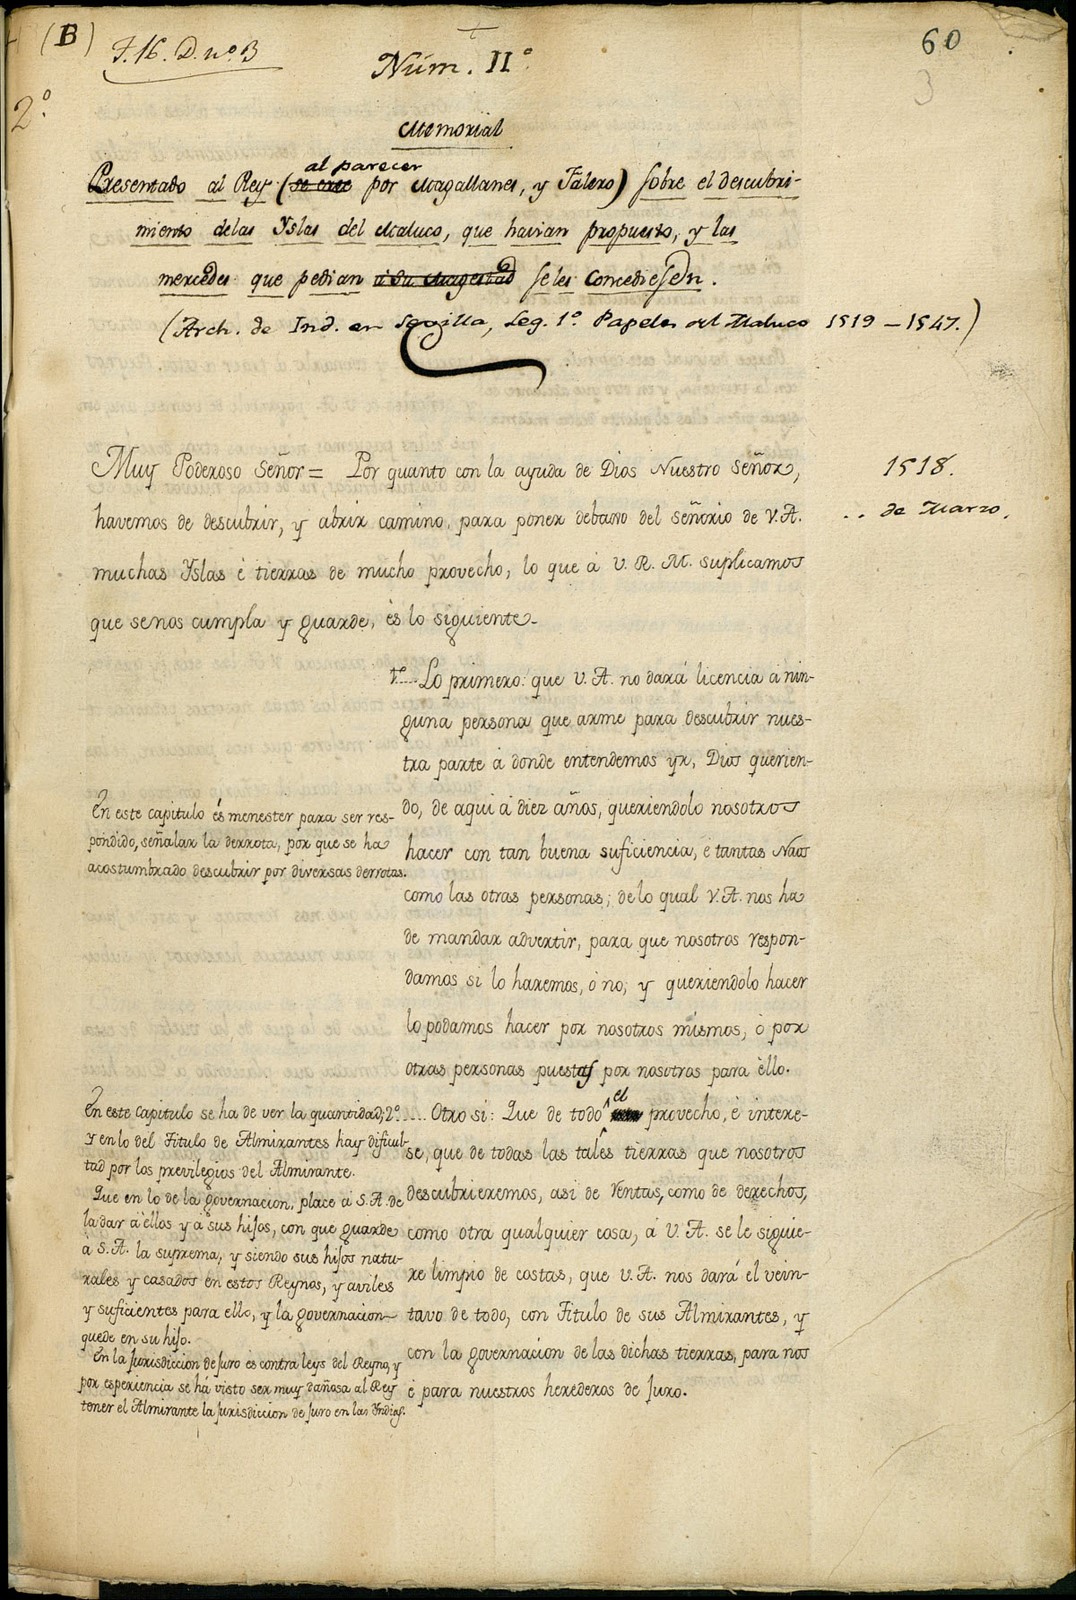 (B)
F. 16. D. nº 3
60
3
Núm. IIº
2º.
Memorial
al parecer
Presentado al Rey (se cree por Magallanes, y Falero) sobre el descubri-
miento delas Yslas del Maluco, que havian propuesto, y las
mercedes que pedian á Su Magestad seles concediesen.
(Arch. de Ind. en Sevilla, Leg. 1º. Papeles del Maluco 1519 – 1547.)
Muy Poderoso Señor = Por quanto con la ayuda de Dios Nuestro Señor,
1518.
havemos de descubrir, y abrir camino para poner debaxo del señorio de V.A.
.. de Marzo.
muchas Yslas é tierras de mucho provecho, lo que á V. R. M. suplicamos
que senos cumpla y guarde, és lo siguiente.
1º.... Lo primero: que V.A. no dará licencia á nin-
guna persona que arme para descubrir nues-
tra parte á donde entendemos yr, Dios querien-
do, de aqui á diez años, queriendolo nosotros
hacer con tan buena suficiencia, é tantas Naos
como las otras personas; de lo qual V.A. nos ha
de mandar advertir, para que nosotros respon-
damos si lo haremos, ó no; y queriendolo hacer
lo podamos hacer por nosotros mismos, ó por
otras personas puestas por nosotros para éllo.
En este capitulo és menester para ser res-
pondido, señalar la derrota, por que se ha
acostumbrado descubrir por diversas derrotas.
2º.... Otro si: Que de todo el provecho, é intere-
se, que de todas las tales tierras que nosotros
descubrieremos, asi de Ventas, como de derechos,
como otra qualquier cosa, á V.A. se le siguie-
re limpio de costas, que V.A. nos dará el vein-
tavo de todo, con Titulo de sus Almirantes, y
con la governación de las dichas tierras, para nos
é para nuestros herederos de juro.
En este capitulo se ha de ver la quantidad,
y en lo del Titulo de Almirantes hay dificul-
tad por los previlegios del Almirante.
Que en lo de la governacion, place á S.A. de
la dar á éllos y á sus hijos, con que guarde
á S.A. la suprema, y siendo sus hijos natu-
rales y casados en estos Reynos, y aviles
y suficientes para ello, y la governacion
quede en su hijo.
En la jurisdiccion de juro es contra leys del Reyno, y
por esperiencia se há visto ser muy dañosa al Rey
tener el Almirante la jurisdiccion de juro en las Yndias.